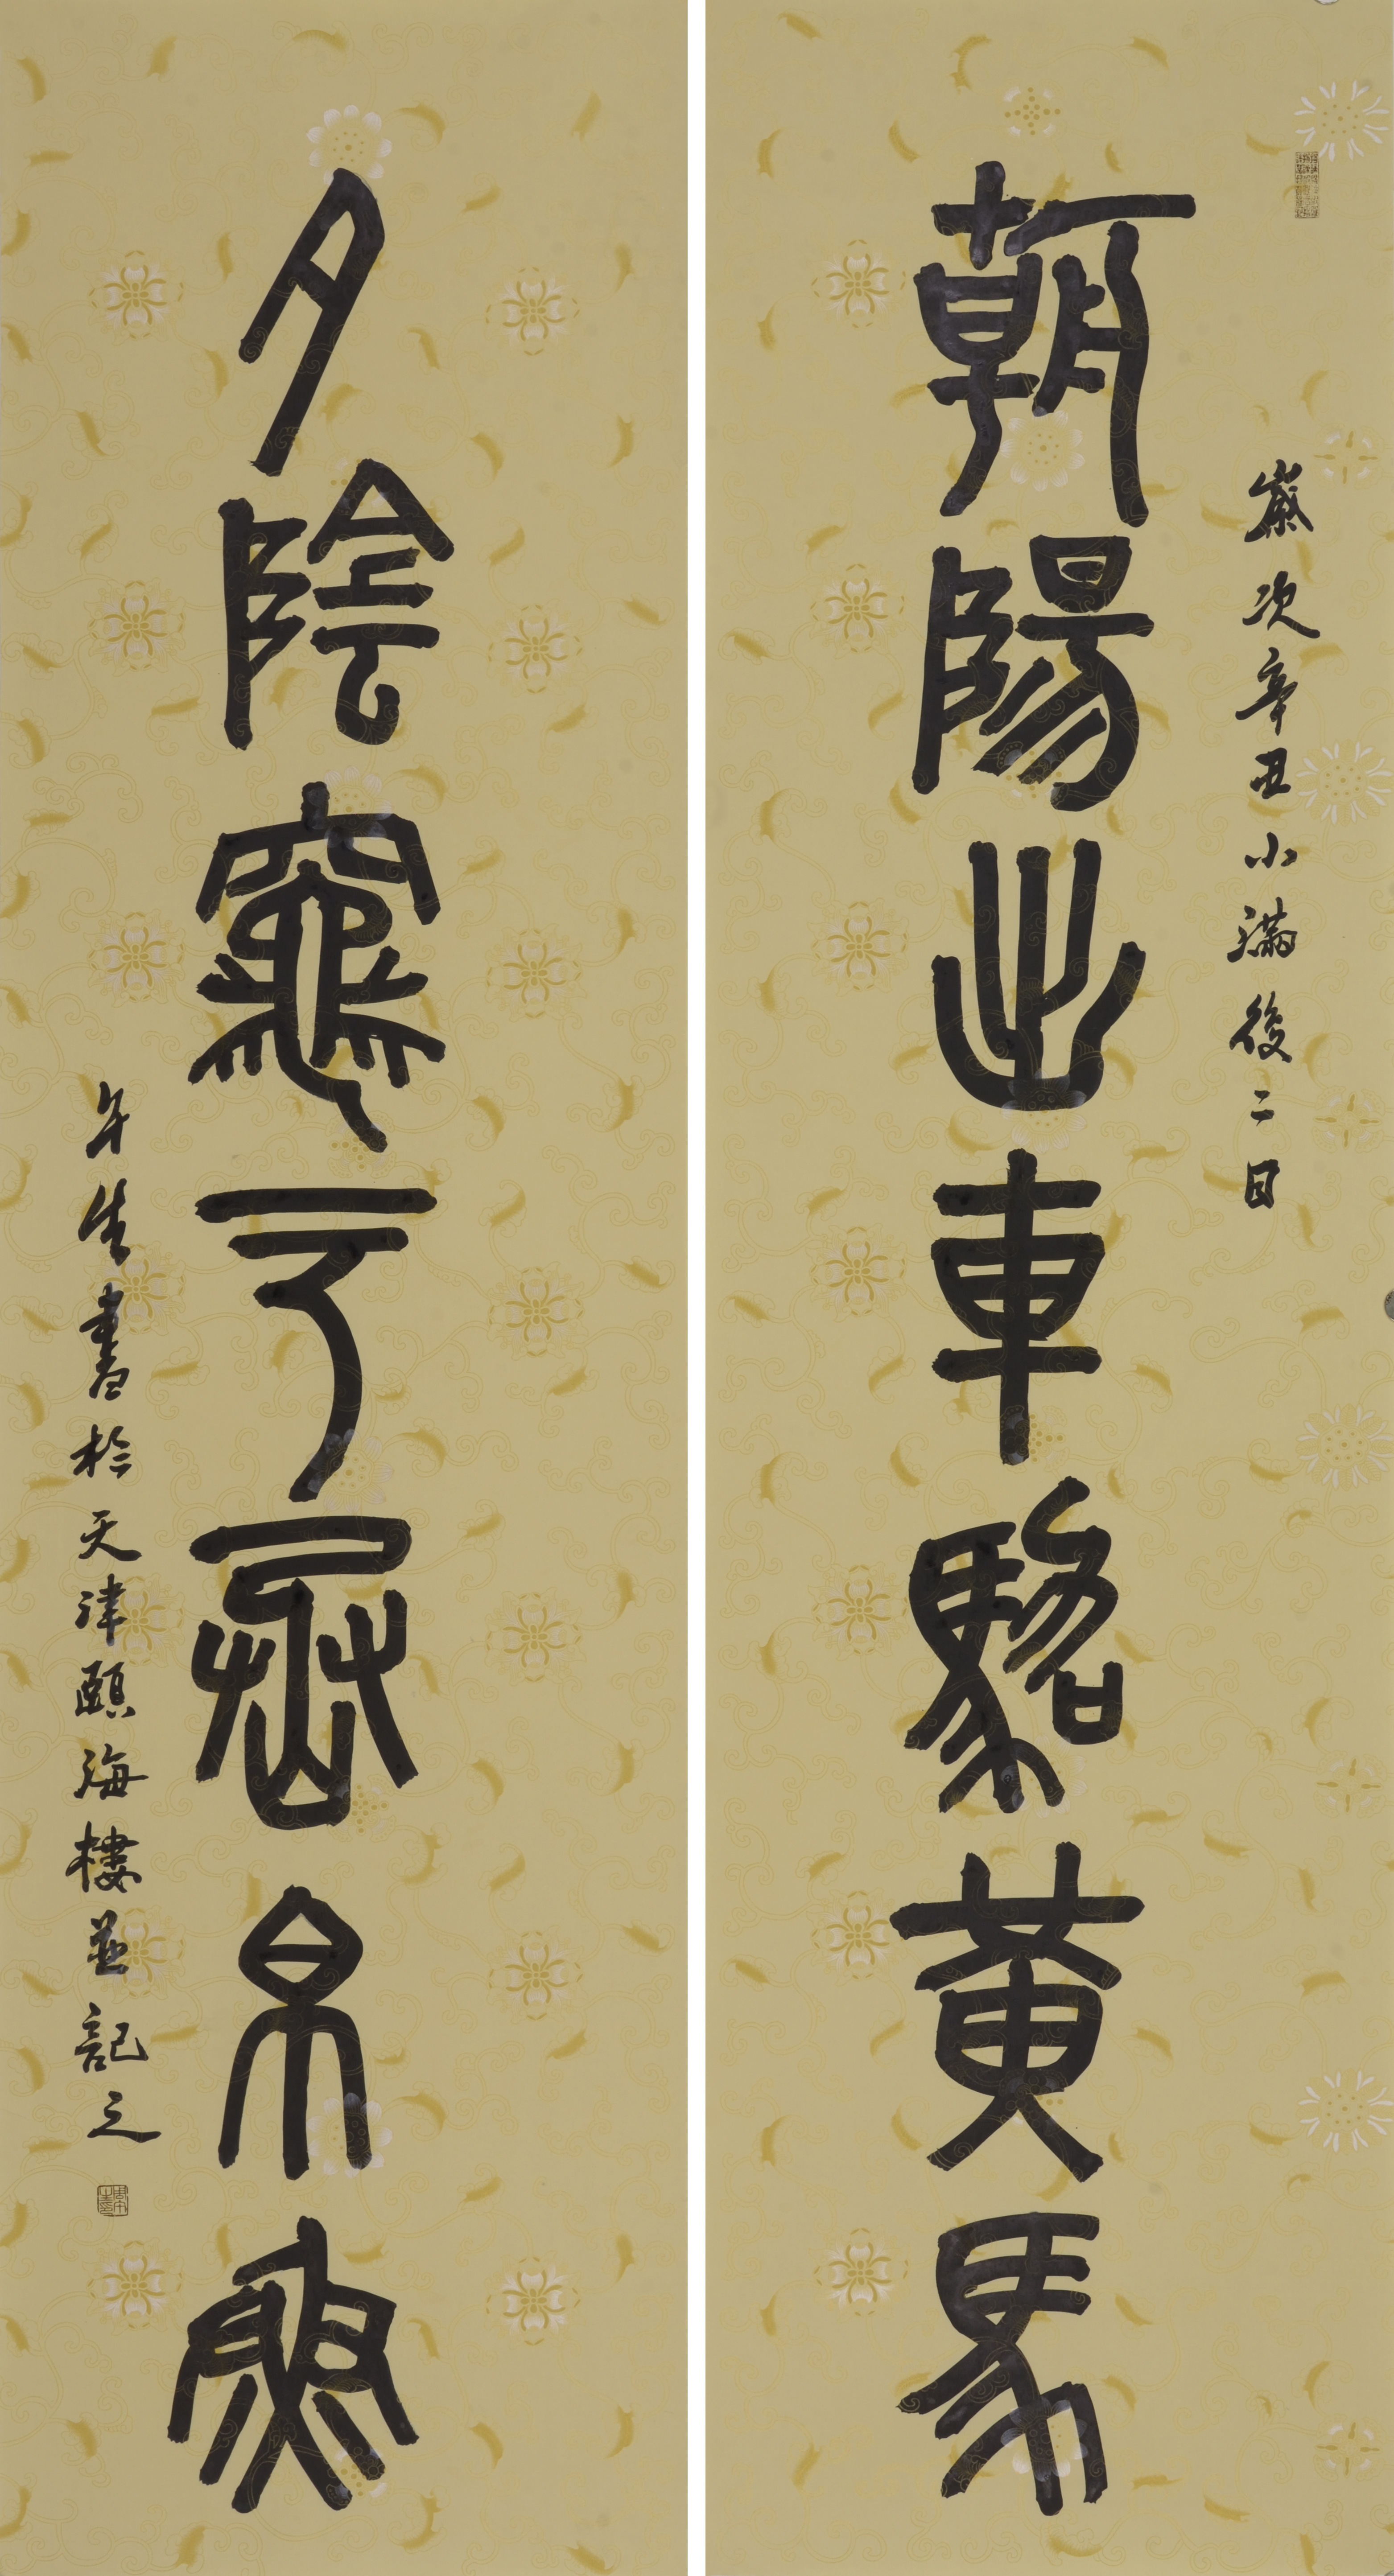 朝陽出車駱黃馬
歲次辛丑小滿後二日
夕陰竈于帛魚
午生書於天津頤海樓並記之